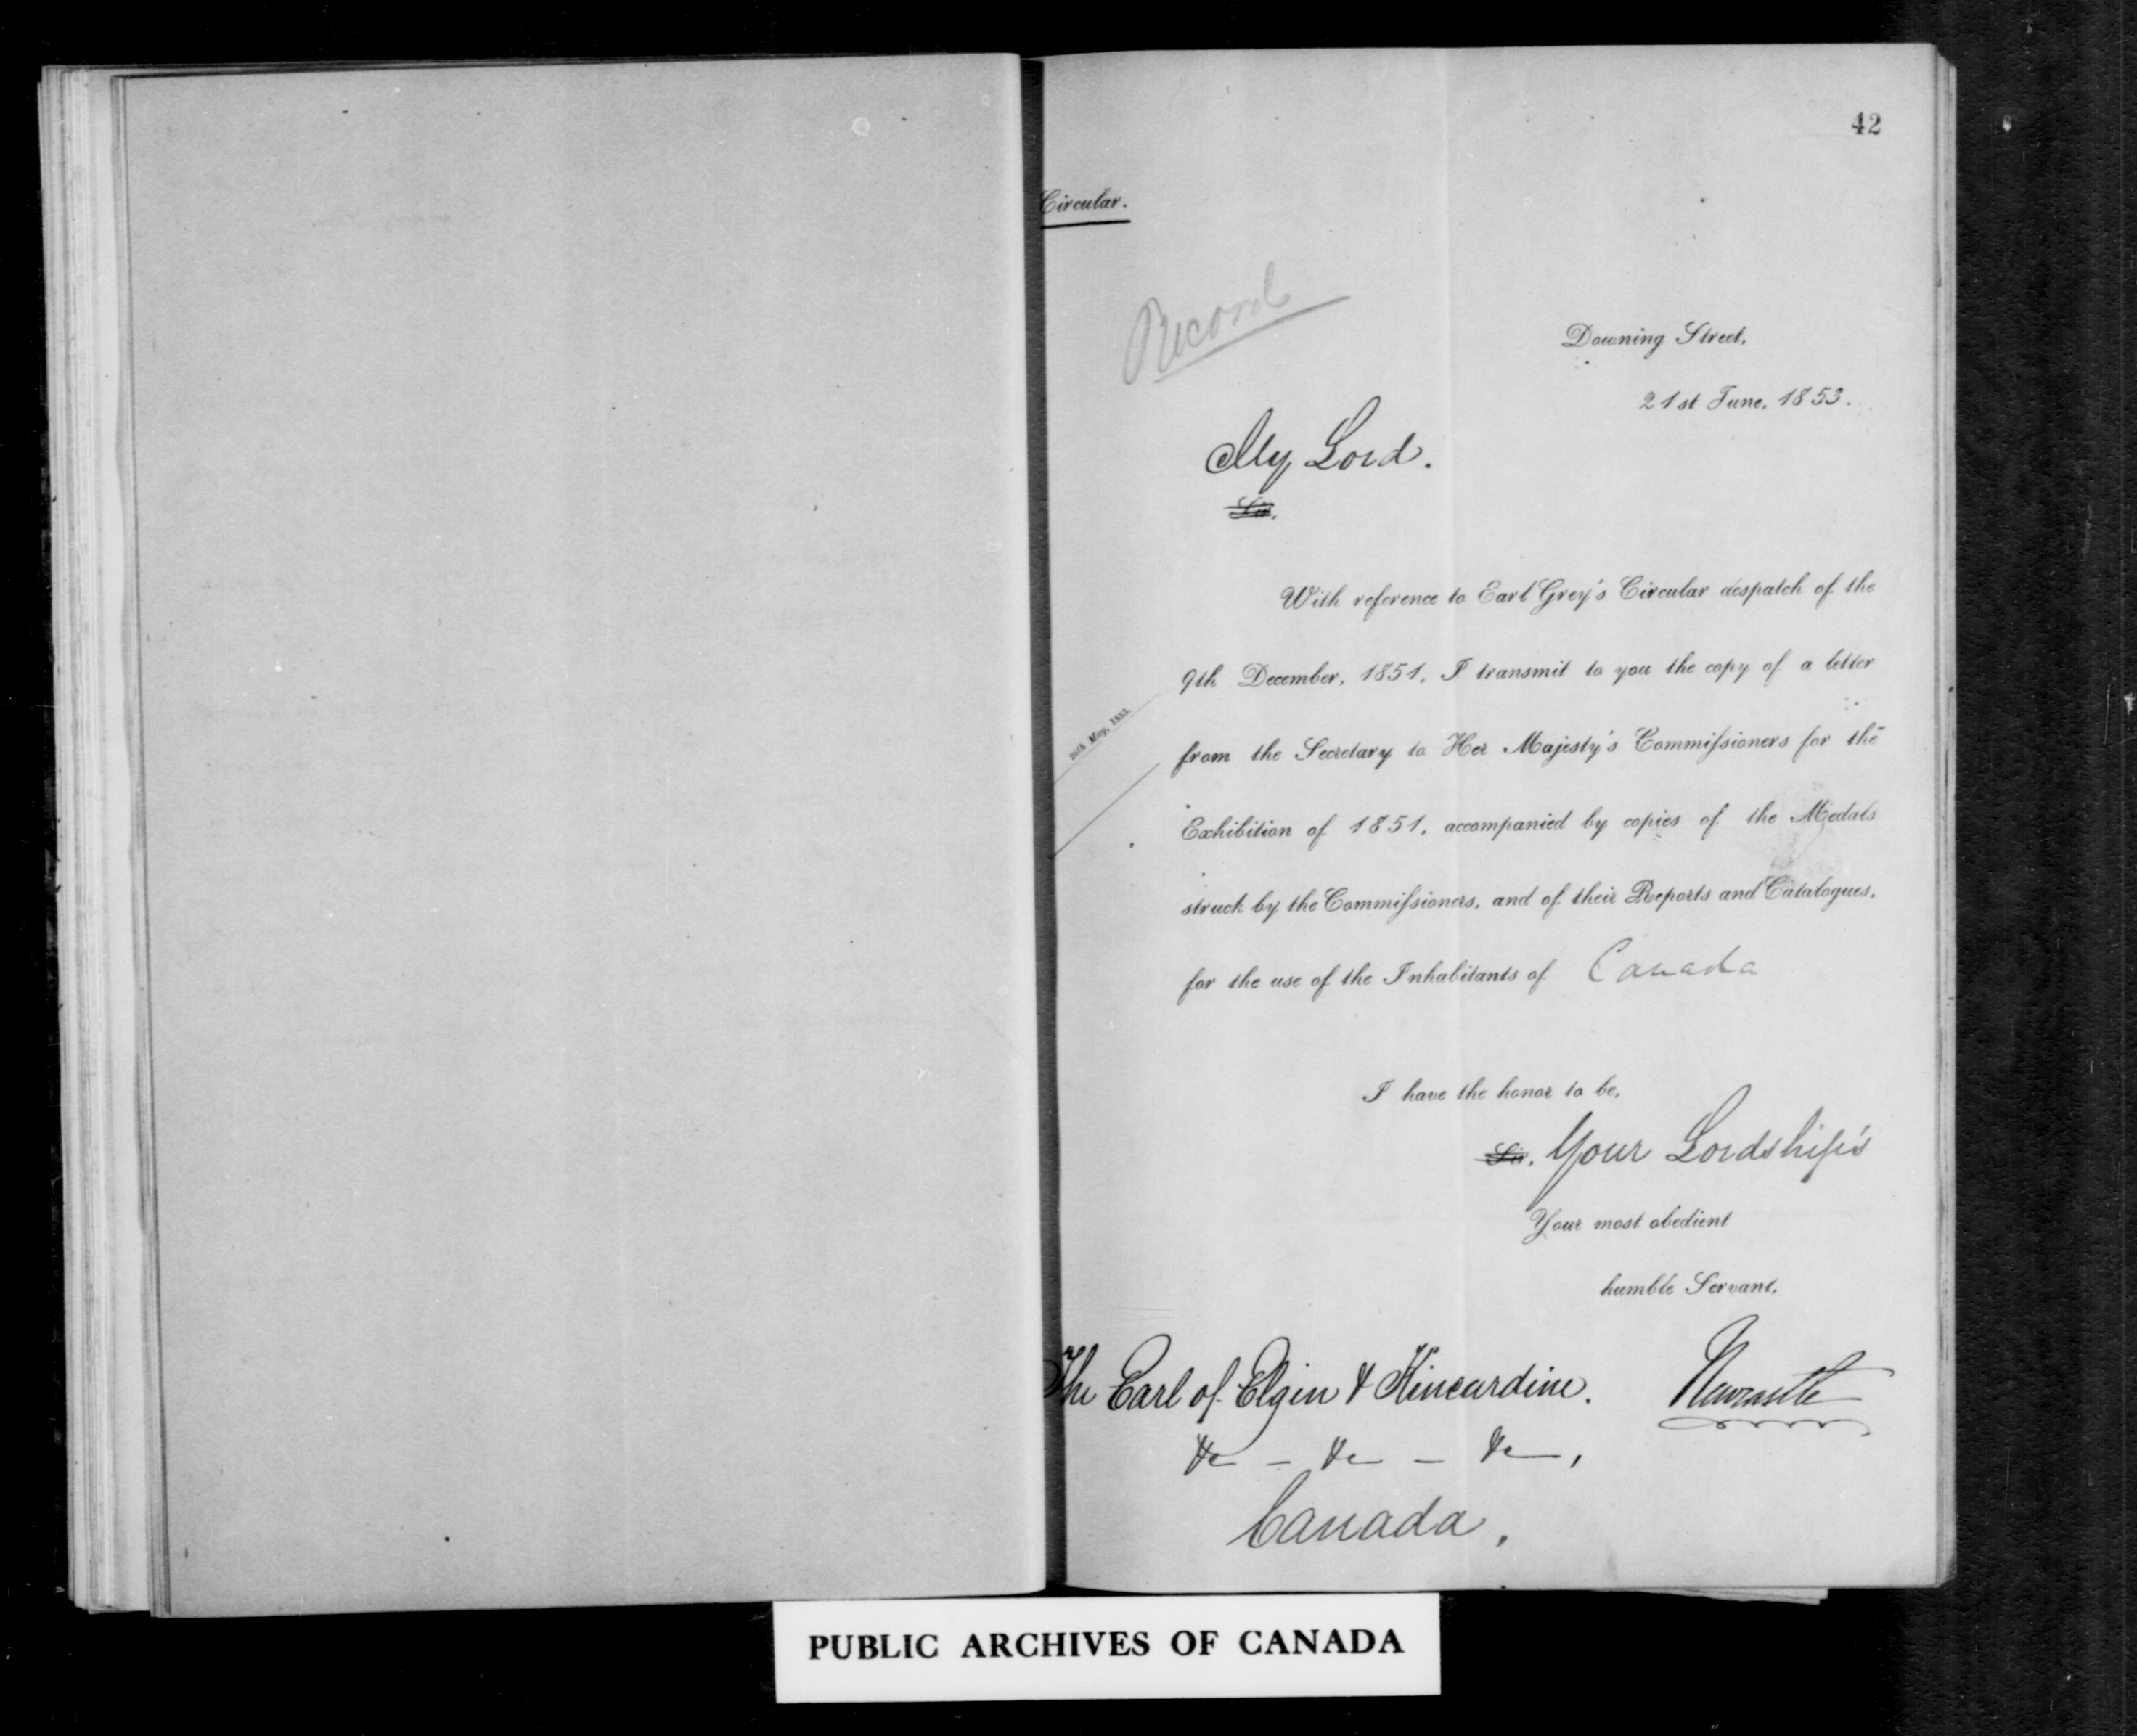 42
Circular.
Record
Downing Street,
21st June, 1853.
My Lord.
Sir,
With reference to Earl Grey's Circular despatch of the
9th December, 1851, I transmit to you the copy of a letter
20th May, 1853.
from the Secretary to Her Majesty's Commiſsioners for the
Exhibition of 1851, accompanied by copies of the Medals
struck by the Commiſsioners, and of their Reports and Catalogues,
for the use of the Inhabitants of Canada
I have the honor to be,
Sir, Your Lordship's
Your most obedient
humble Servant,
The Earl of Elgin & Kincardine.
Newcastle
&c – &c – &c,
Canada,
PUBLIC ARCHIVES OF CANADA